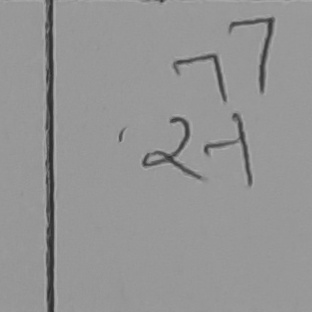 77
27